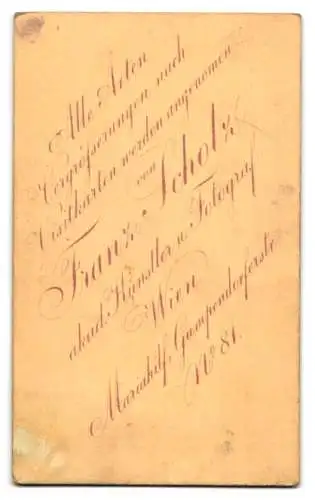 Alle Arten
Vergrößerungen nach
Visitkarten werden angenomen
von
Franz Scholz
akad. Künstler u. Fotograf
Wien
Mariahilf, Gumpendorferstr.
No 81.